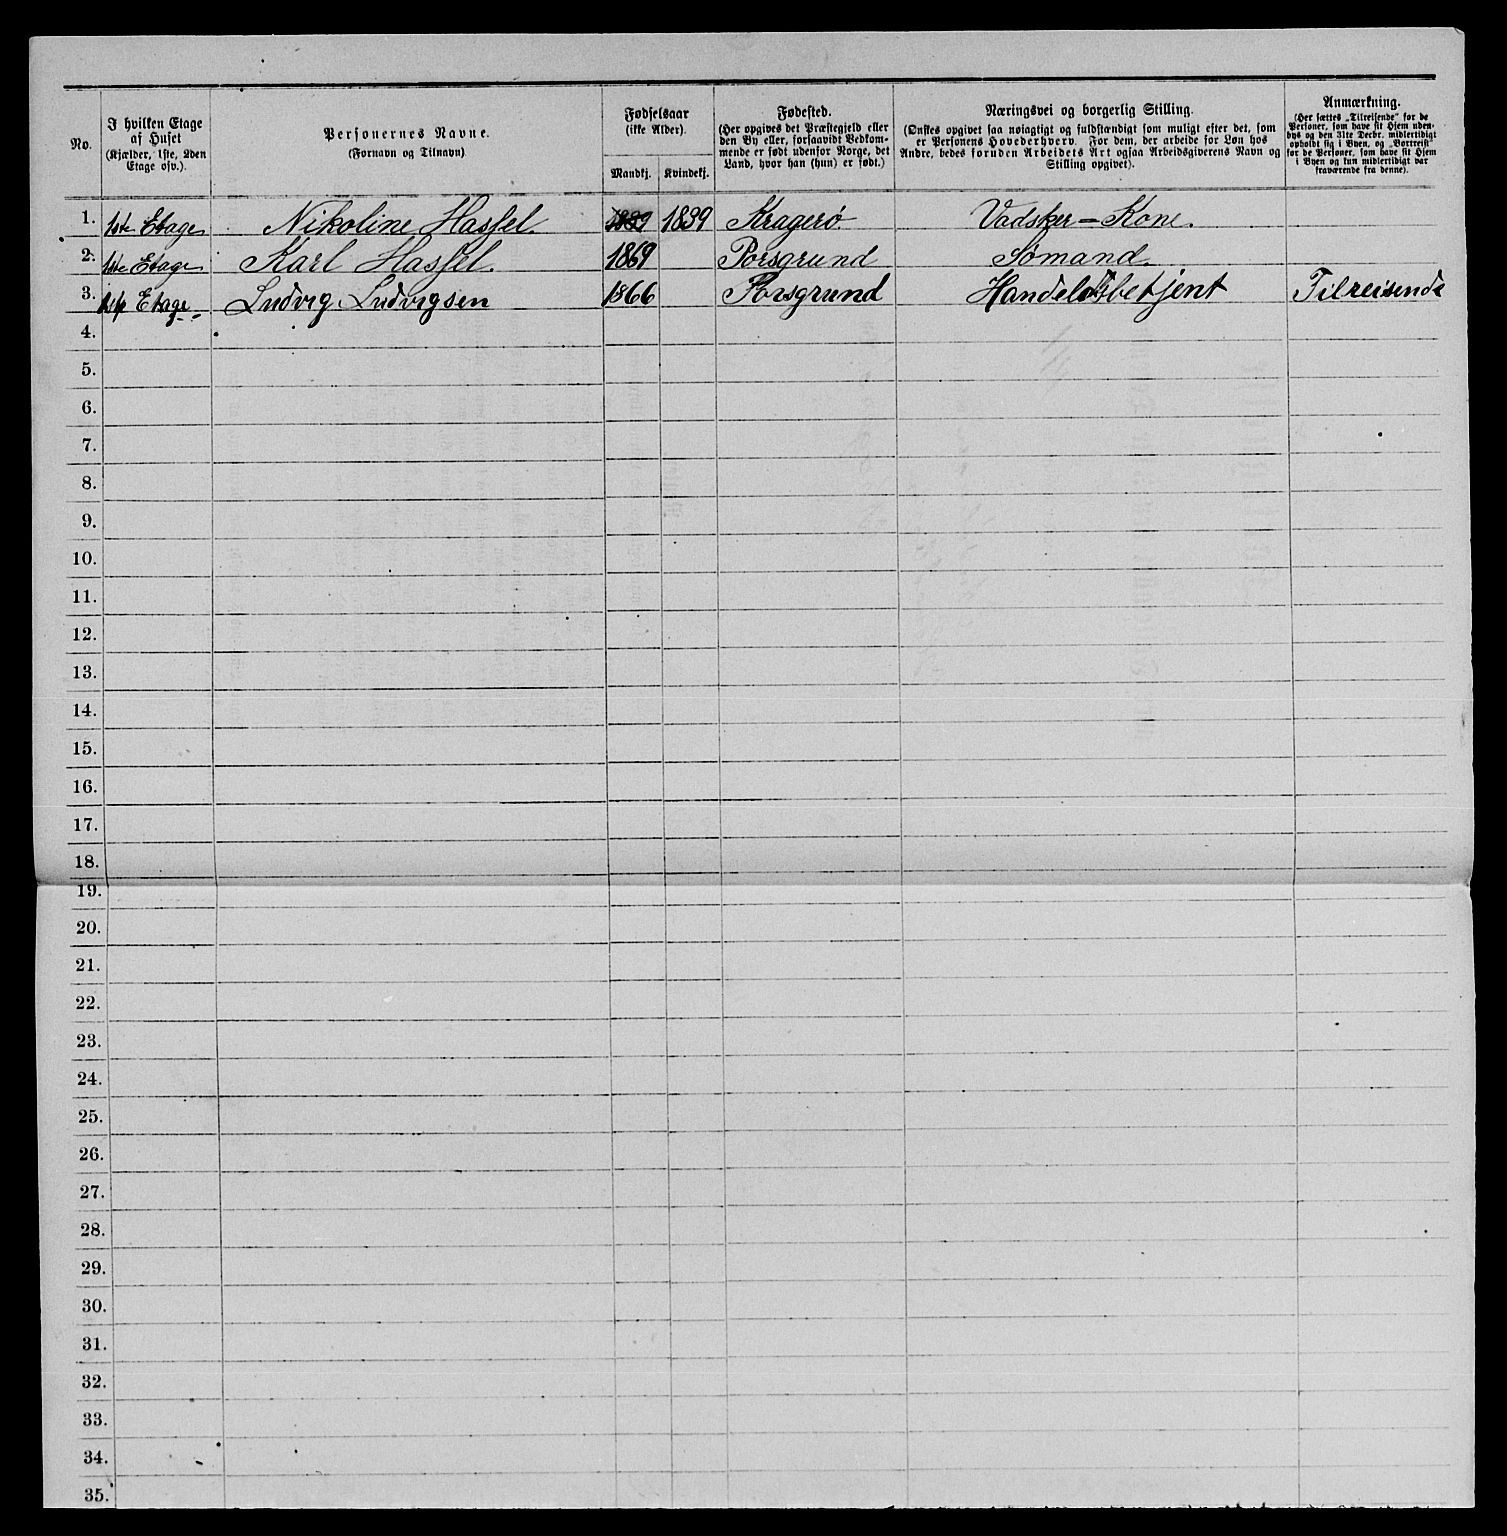 No.
I hvilken Etage
af Huset
(Kjælder, 1ste, 2den
Etage osv.).
Personernes Navne.
(Fornavn og Tilnavn)
Fødselsaar
(ikke Alder).
Mandkj. Kvindekj.
Fødested.
(Her opgives det Præstegjeld eller
den By eller, forsaavidt Vedkom-
mende er født udenfor Norge, det
Land, hvor han (hun) er født.)
Næringsvei og borgerlig Stilling.
(Ønskes opgivet saa nøiagtigt og fuldstændigt som muligt efter det, som
er Personens Hovederhverv. For dem, der arbeide for Løn hos
Andre, bedes foruden Arbeidets Art ogsaa Arbeidsgiverens Navn og
Stilling opgivet).
Anmærkning.
(Her sættes „Tilreisende" for de
Personer, som have sit Hjem uden-
bys og den 31te Decbr. midlertidigt
opholdt sig i Byen, og „Bortreist"
for de Personer, som have sit Hjem
i Byen og kun midlertidigt var
fraværende fra denne).
1. 1ste Etage Nikoline Hassel. 1839 1839 Kragerø. Vadsker-Kone.
2. 1ste Etage Karl Hassel. 1869 Porsgrund Sømand.
3. 1ste Etage Ludvig Ludvigsen 1866 Porsgrund Handelsbetjent Tilreisende
4.
5.
6.
7.
8.
9.
10.
11.
12.
13.
14.
15.
16.
17.
18.
19.
20.
21.
22.
23.
24.
25.
26.
27.
28.
29.
30.
31.
32.
33.
34.
35.